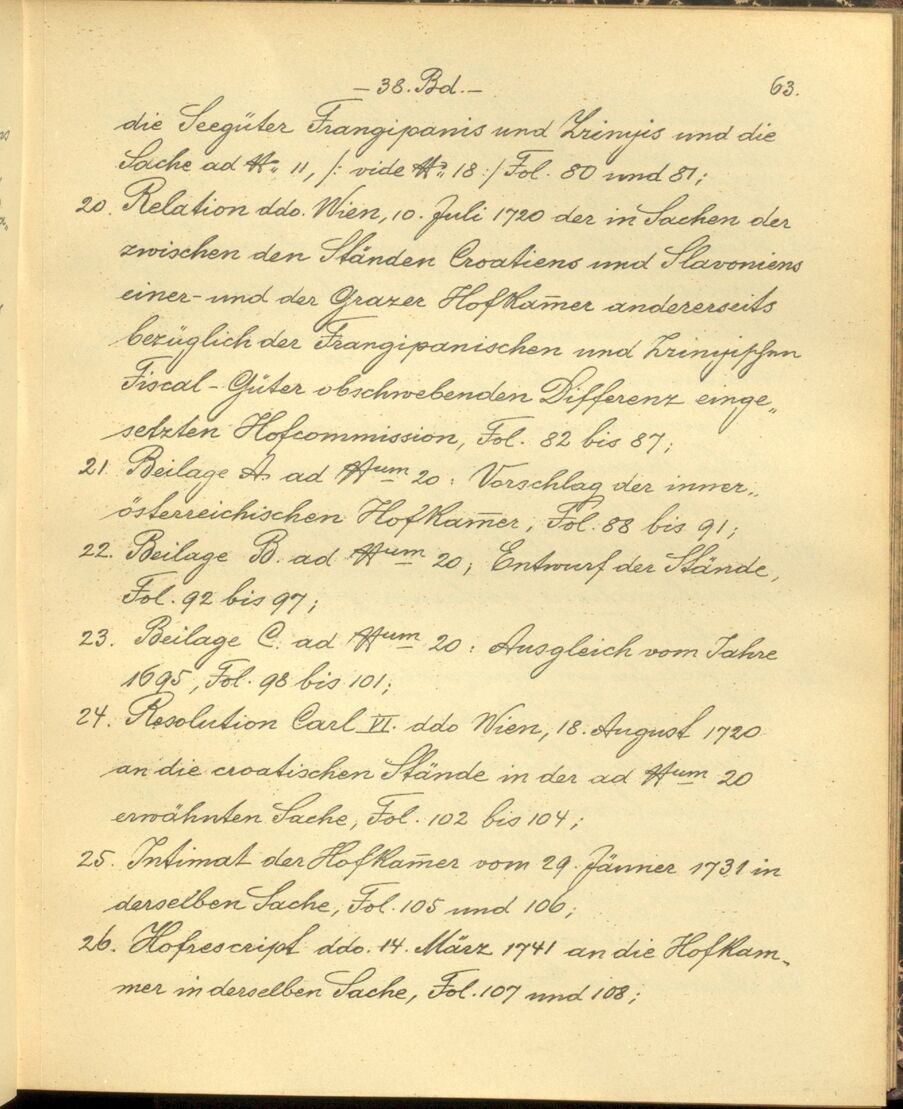 – 38. Bd. –
63.
die Seegüter Frangipanis und Zrinyis und die
Sache ad № 11, /: vide № 18 :/ Fol. 80 und 81;
20. Relation ddo. Wien, 10. Juli 1720 der in Sachen der
zwischen den Ständen Croatiens und Slavoniens
einer- und der Grazer Hofkam̅er andererseits
bezüglich der Frangipanischen und Zrinyischen
Fiscal-Güter obschwebenden Differenz einge„
setzten Hofcommission, Fol. 82 bis 87;
21. Beilage A. ad Num 20: Vorschlag der inner„
österreichischen Hofkam̅er, Fol. 88 bis 91;
22. Beilage B. ad Num 20; Entwurf der Stände,
Fol. 92 bis 97;
23. Beilage C. ad Num 20: Ausgleich vom Jahre
1695, Fol. 98 bis 101;
24. Resolution Carl VI. ddo Wien, 18. August 1720
an die croatischen Stände in der ad Num 20
erwähnten Sache, Fol. 102 bis 104;
25. Intimat der Hofkam̅er vom 29. Jänner 1731 in
derselben Sache, Fol. 105 und 106;
26. Hofrescript ddo. 14. März 1741 an die Hofkam-
mer in derselben Sache, Fol. 107 und 108;